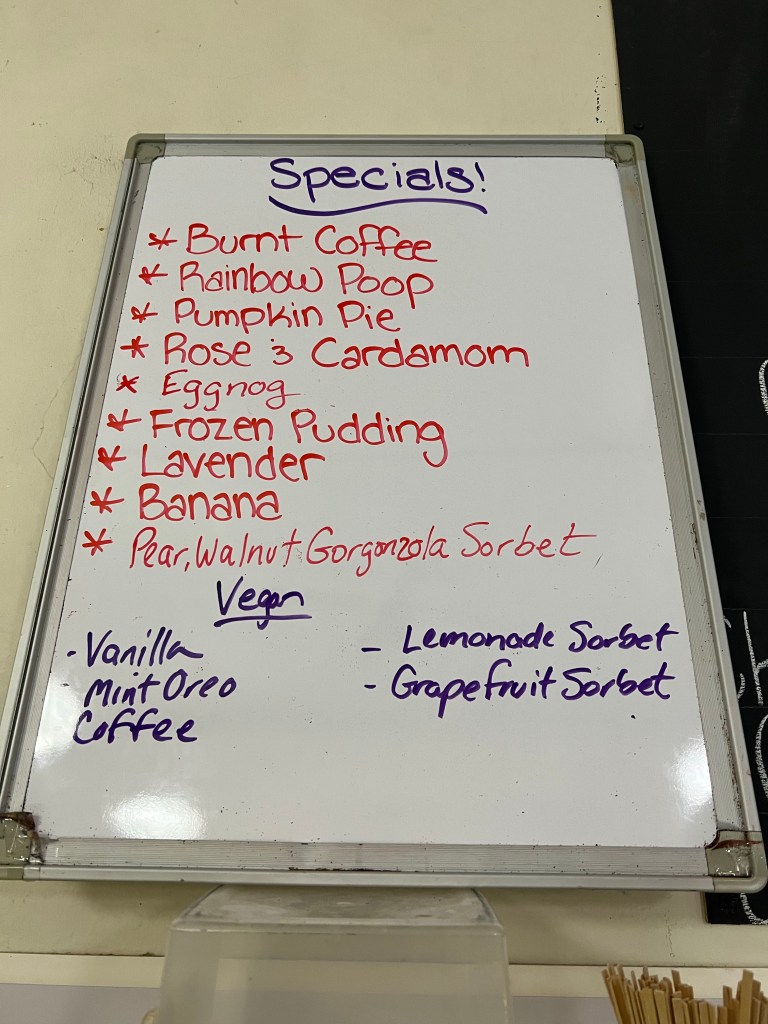 Specials!
* Burnt Coffee
* Rainbow Poop
* Pumpkin Pie
* Rose & Cardamom
* Eggnog
* Frozen Pudding
* Lavender
* Banana
* Pear, Walnut Gorgonzola Sorbet
Vegan
- Vanilla
- Mint Oreo
Coffee
- Lemonade Sorbet
- Grapefruit Sorbet